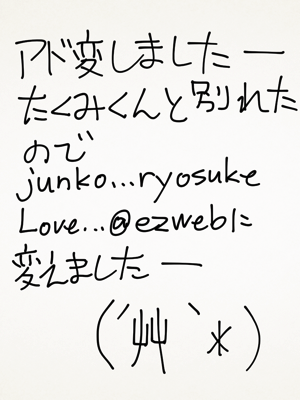 アド変しましたー
たくみくんと別れた
ので
junko...ryosuke
Love...@ezwebに
変えましたー
(´艸｀*)